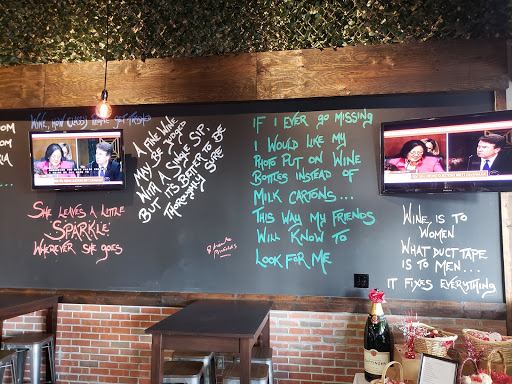 WINE, HOW CLASSY PEOPLE GET TRASHED
SHE LEAVES A LITTLE
SPARKLE
WHEREVER SHE GOES
A FINE WINE
MAY BE JUDGED
WITH A SINGLE SIP,
BUT IT'S BETTER TO BE
THOROUGHLY SURE
IF I EVER GO MISSING
I WOULD LIKE MY
PHOTO PUT ON WINE
BOTTLES INSTEAD OF
MILK CARTONS...
THIS WAY MY FRIENDS
WILL KNOW TO
LOOK FOR ME
WINE, IS TO
WOMEN
WHAT DUCT TAPE
IS TO MEN...
IT FIXES EVERYTHING